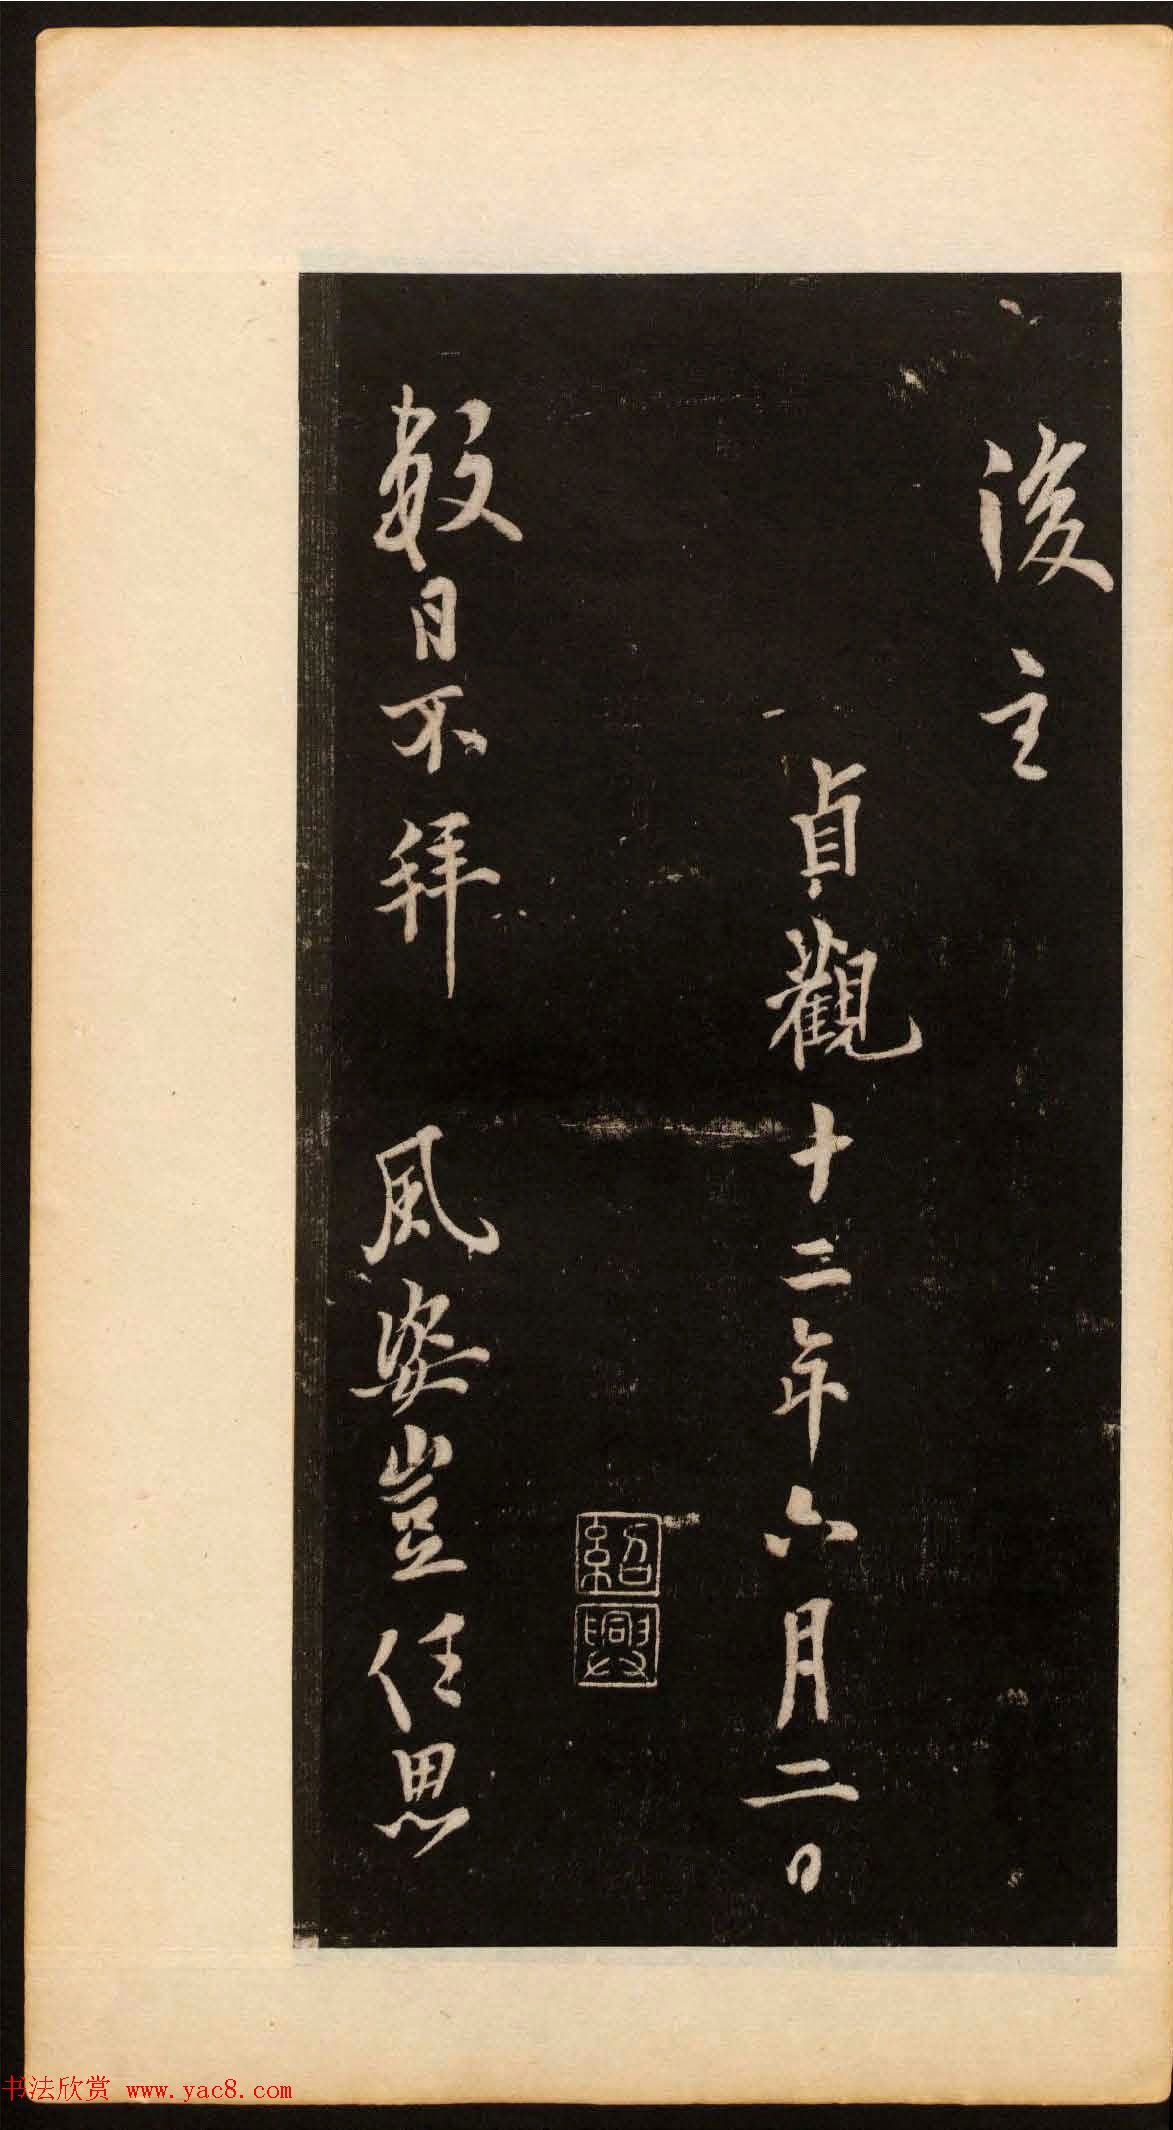 後主
貞觀十三年六月二日
紹興
數日不拜 風姿豈任思
书法欣赏 www.yac8.com